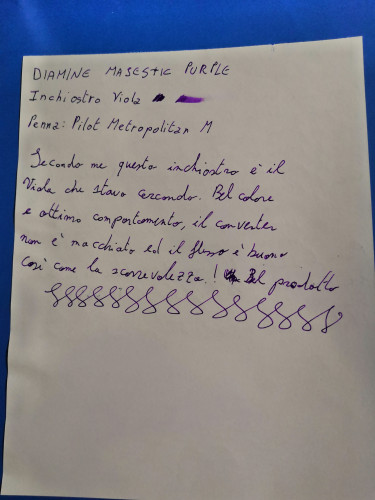 DIAMINE MAJESTIC PURPLE
Inchiostro Viola
Penna: Pilot Metropolitan M
Secondo me questo inchiostro è il
Viola che stavo cercando. Bel colore
e ottimo comportamento, il converter
non è macchiato ed il flusso è buono
così come la scorrevolezza! Bel prodotto